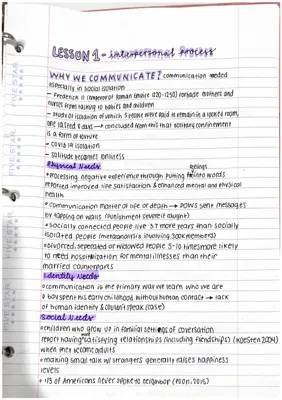 LESSON 1 - interpersonal Process
WHY WE COMMUNICATE? communication needed
especially in social isolation
- Frederick II (emperor of Roman Empire 1220-1250) forbade mothers and
nurses from talking to babies and children
- study of isolation of which 5 people were paid to remain in a locked room,
one lasted 8 days → concluded from this that solitary confinement
is a form of torture
- Covid 19 isolation
- solitude becomes loneliness
Physical Needs
• Processing negative experience through putting feelings into words
reported improved life satisfaction & enhanced mental and physical
health
• communication matter of life or death → POWS sent messages
by tapping on walls (punishment severe if caught)
• socially connected people live 3.7 more years than socially
isolated people
• divorced, seperated or widowed people 5-10 times more likely
to need hospitilization for mental illnesses than their
married counterparts
Identity Needs
• communication is the primary way we learn who we are
• boy spent his early childhood without human contact → lack
of human identity & couldn't speak
Social Needs
• children who grow up in familial settings of conversation
report having satisfying relationships (including friendships) (Koesten 2004)
when they become adults
• making small talk w/ strangers generally raises happiness
levels
• 1/3 of Americans never spoke to neighbor (Poon, 2015)
FIVE STAR
FIVE STAR
FIVE STAR